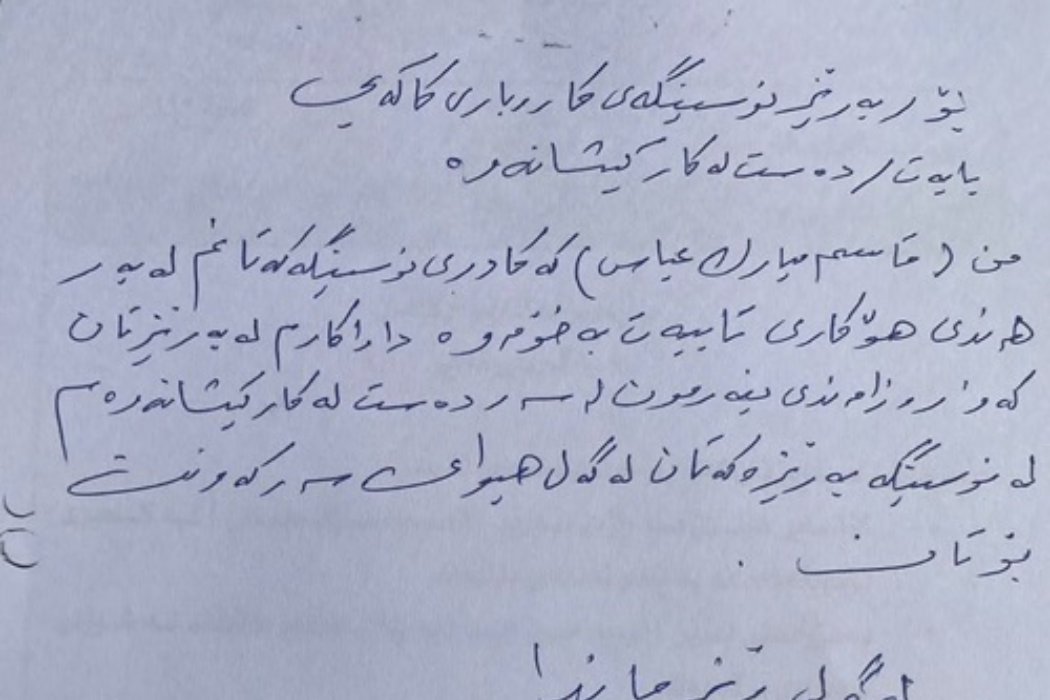 بۆ / بەڕێز نوسینگەی کاروباری کاکەیی
بابەت / دەست لەکارکێشانەوە
من (قاسم مبارك عباس) کە کادری نوسینگەکەتانم لەبەر
هەندێ هۆکاری تایبەت بە خۆمەوە داواکارم لەبەڕێزتان
کە ڕەزامەندی بفەرمون لەسەر دەست لەکارکێشانەوەم
لە نوسینگە بەڕێزەکەتان لەگەڵ هیوای سەرکەوتن
بۆتان .
لەگەڵ ڕێزماندا